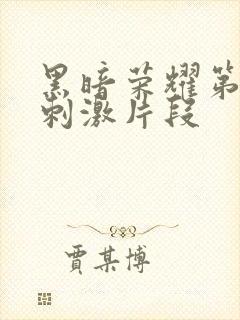 黑暗荣耀第
刺激片段
贾某博